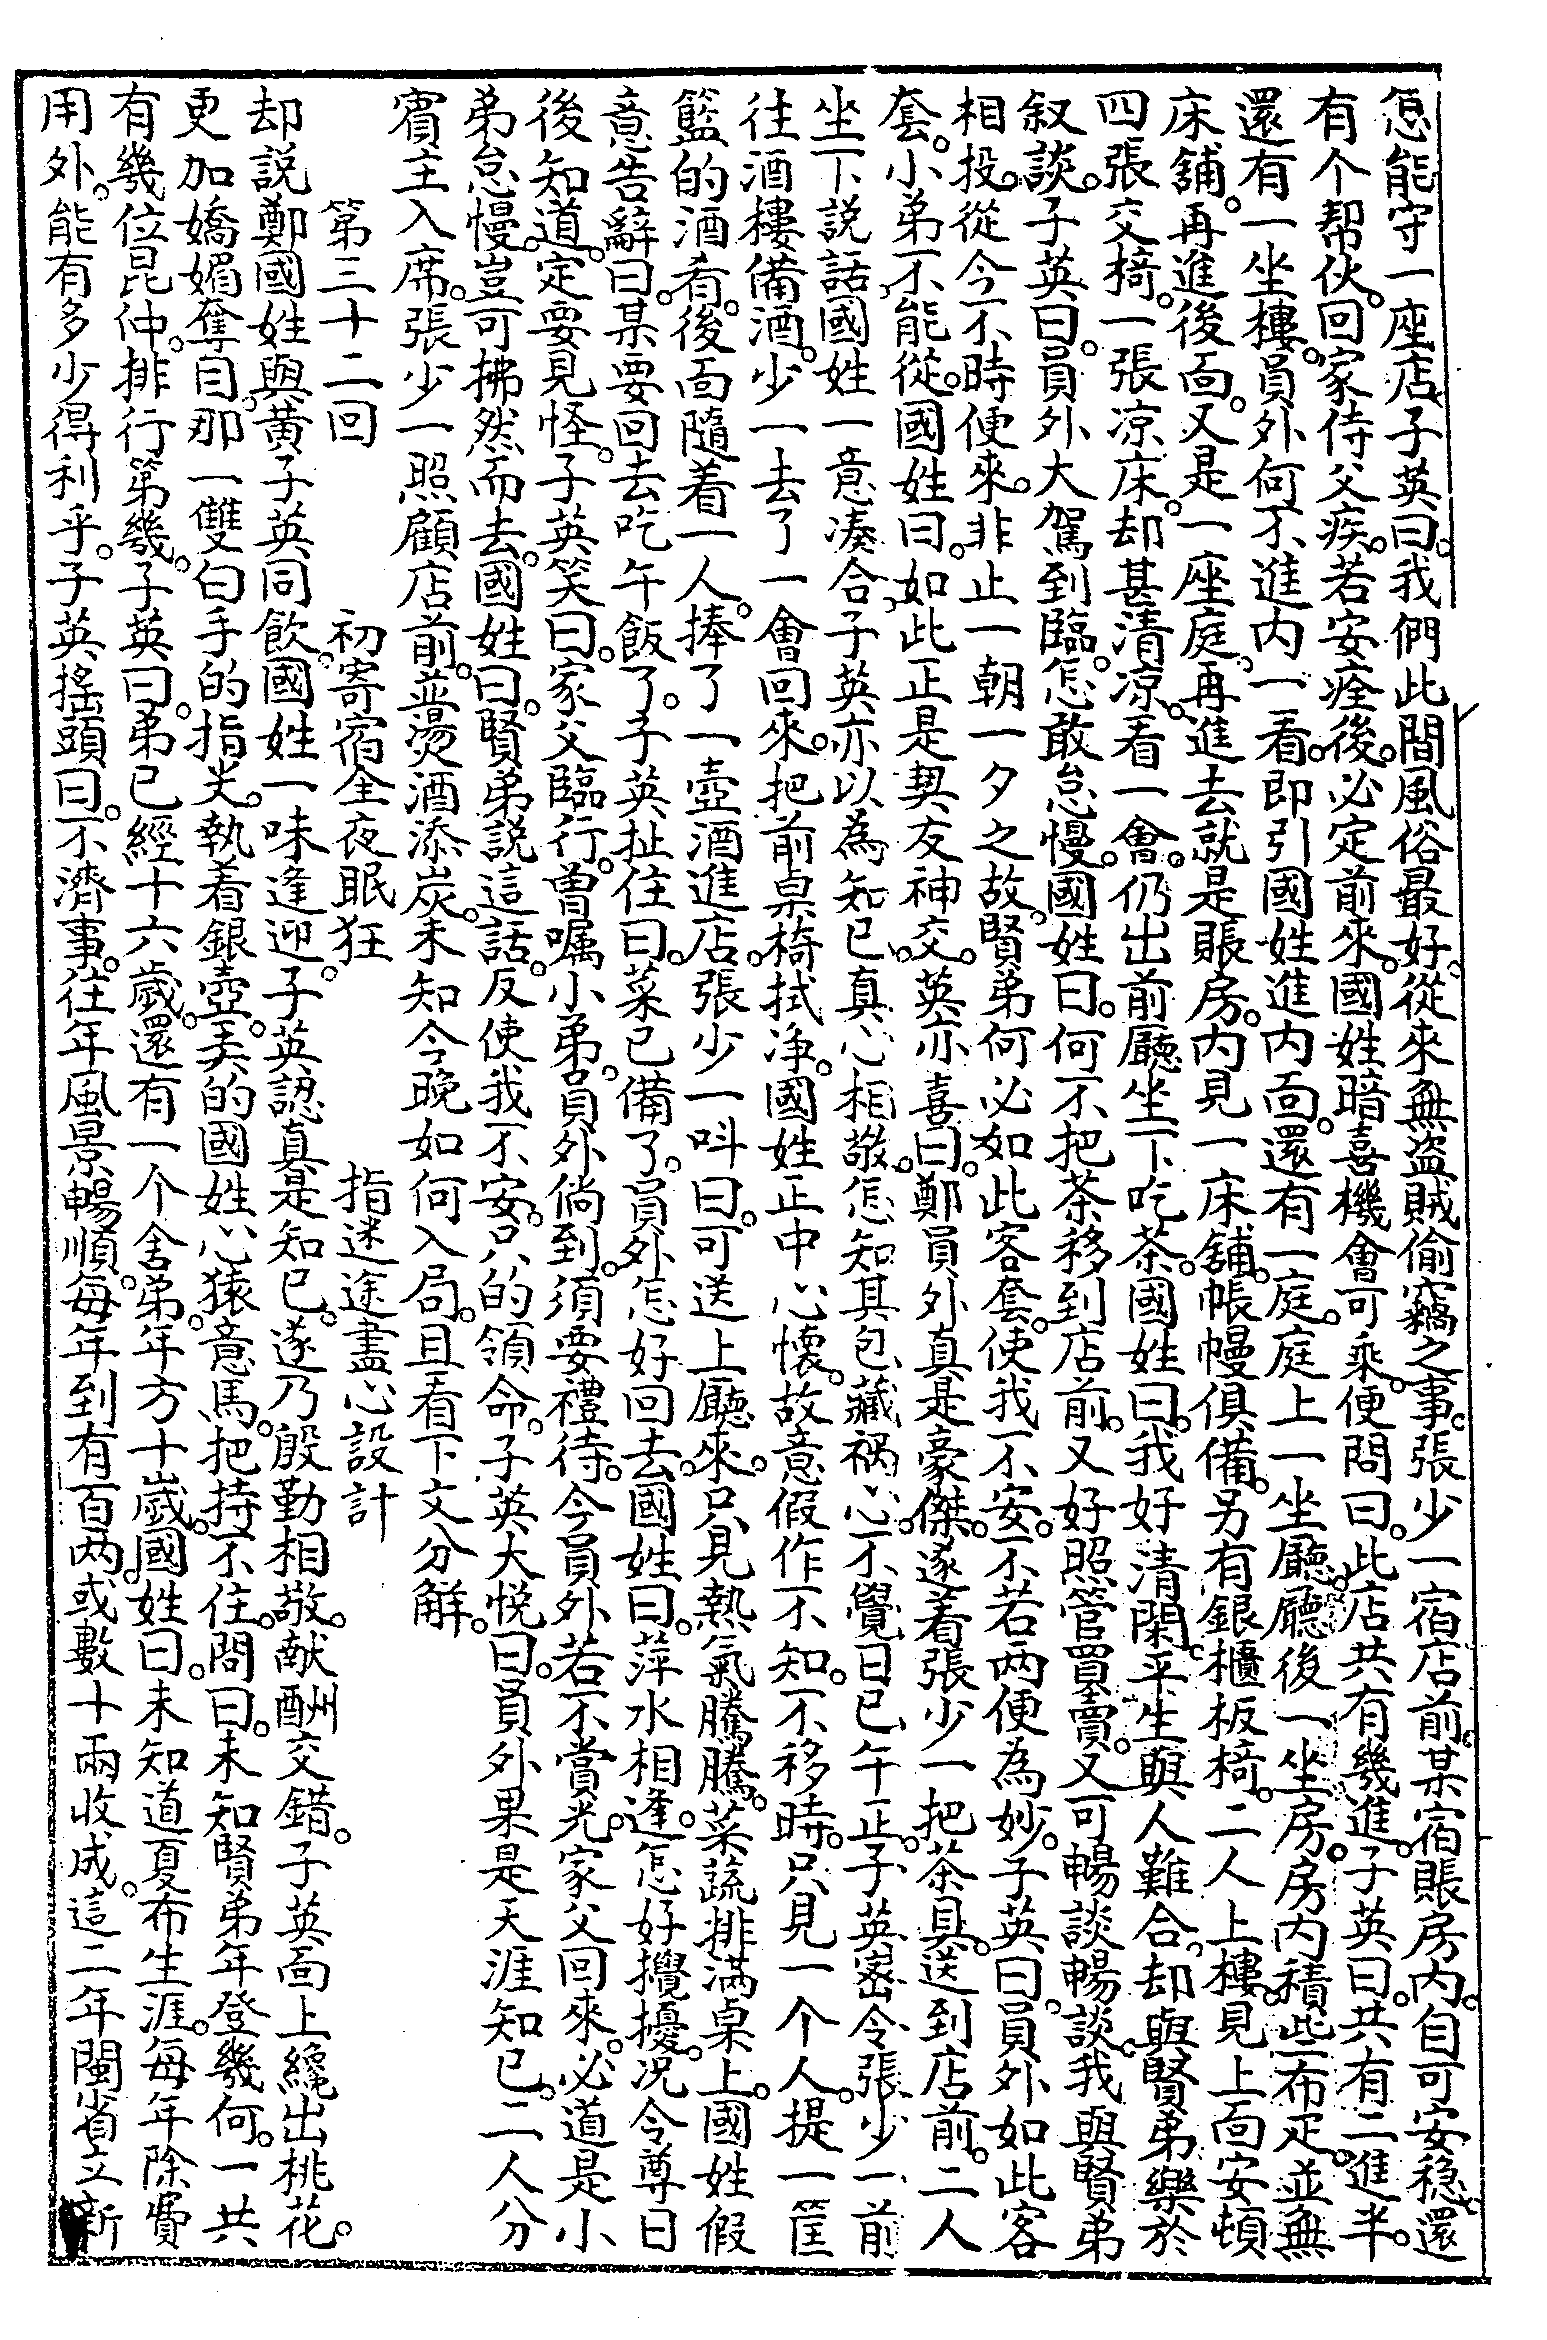 怎能守一座店子英曰。我們此間風俗最好。從來無盜賊偷竊之事。張少一宿店前。某宿賬房內。自可安穩。還
有个帮伙。回家侍父疾。若安痊後。必定前來。國姓暗喜機會可乘。便問曰。此店共有幾進。子英曰。共有二進半。
還有一坐樓。員外何不進內一看。即引國姓進內面。還有一庭。庭上一坐廳。廳後一坐房。房內積些布疋。並無
床舖。再進後面。又是一座庭。再進去就是賬房。內見一床舖。帳幔俱備。另有銀櫃板椅。二人上樓。見上面安頓
四張交椅。一張凉床。却甚清凉。看一會。仍出前廳坐下吃茶。國姓曰。我好清閑。平生與人難合。却與賢弟樂於
叙談。子英曰。員外大駕到臨。怎敢怠慢。國姓曰。何不把茶移到店前。又好照管買賣。又可暢談暢談。我與賢弟
相投。從今不時便來。非止一朝一夕之故。賢弟何必如此客套。使我不安。不若两便為妙。子英曰。員外如此客
套。小弟不能從。國姓曰。如此正是契友神交。英亦喜曰。鄭員外真是豪傑。遂着張少一把茶具。送到店前。二人
坐下說話。國姓一意凑合。子英亦以為知已。真心相敬。怎知其包藏禍心。不覺日已午正。子英密令張少一前
往酒樓備酒。少一去了一會回來。把前桌椅拭净。國姓正中心懷。故意假作不知。不移時。只見一个人。提一筐
籃的酒肴。後面隨着一人。捧了一壺酒進店。張少一呌曰。可送上廳來。只見熱氣騰騰。菜蔬排滿桌上。國姓假
意告辭曰。某要回去吃午飯了。子英扯住曰。菜已備了。員外怎好回去。國姓曰。萍水相逢。怎好攪擾。况令尊日
後知道。定要見怪。子英笑曰。家父臨行。曾嘱小弟。員外倘到。須要禮待。今員外若不賞光。家父回來。必道是小
弟怠慢。豈可拂然而去。國姓曰。賢弟說這話。反使我不安。只的領命。子英大悦曰。員外果是天涯知已。二人分
賓主入席。張少一照顧店前。並燙酒添炭。未知今晚如何入局。且看下文分觧。
第三十二回　初寄宿全夜眠狂　指迷途盡心設計
却說鄭國姓與黃子英同飲。國姓一味逢迎。子英認真是知已。遂乃殷勤相敬。献酬交錯。子英面上纔出桃花。
更加嬌媚奪目。那一雙白手的指尖。執着銀壺。弄的國姓心猿意馬。把持不住。問曰。未知賢弟年登幾何。一共
有幾位昆仲。排行第幾。子英曰。弟已經十六歲。還有一个舍弟。年方十歲。國姓曰。未知道夏布生涯。每年除費
用外。能有多少得利乎。子英搖頭曰。不濟事。往年風景暢順。每年到有百两。或數十兩收成。這二年閩省立新